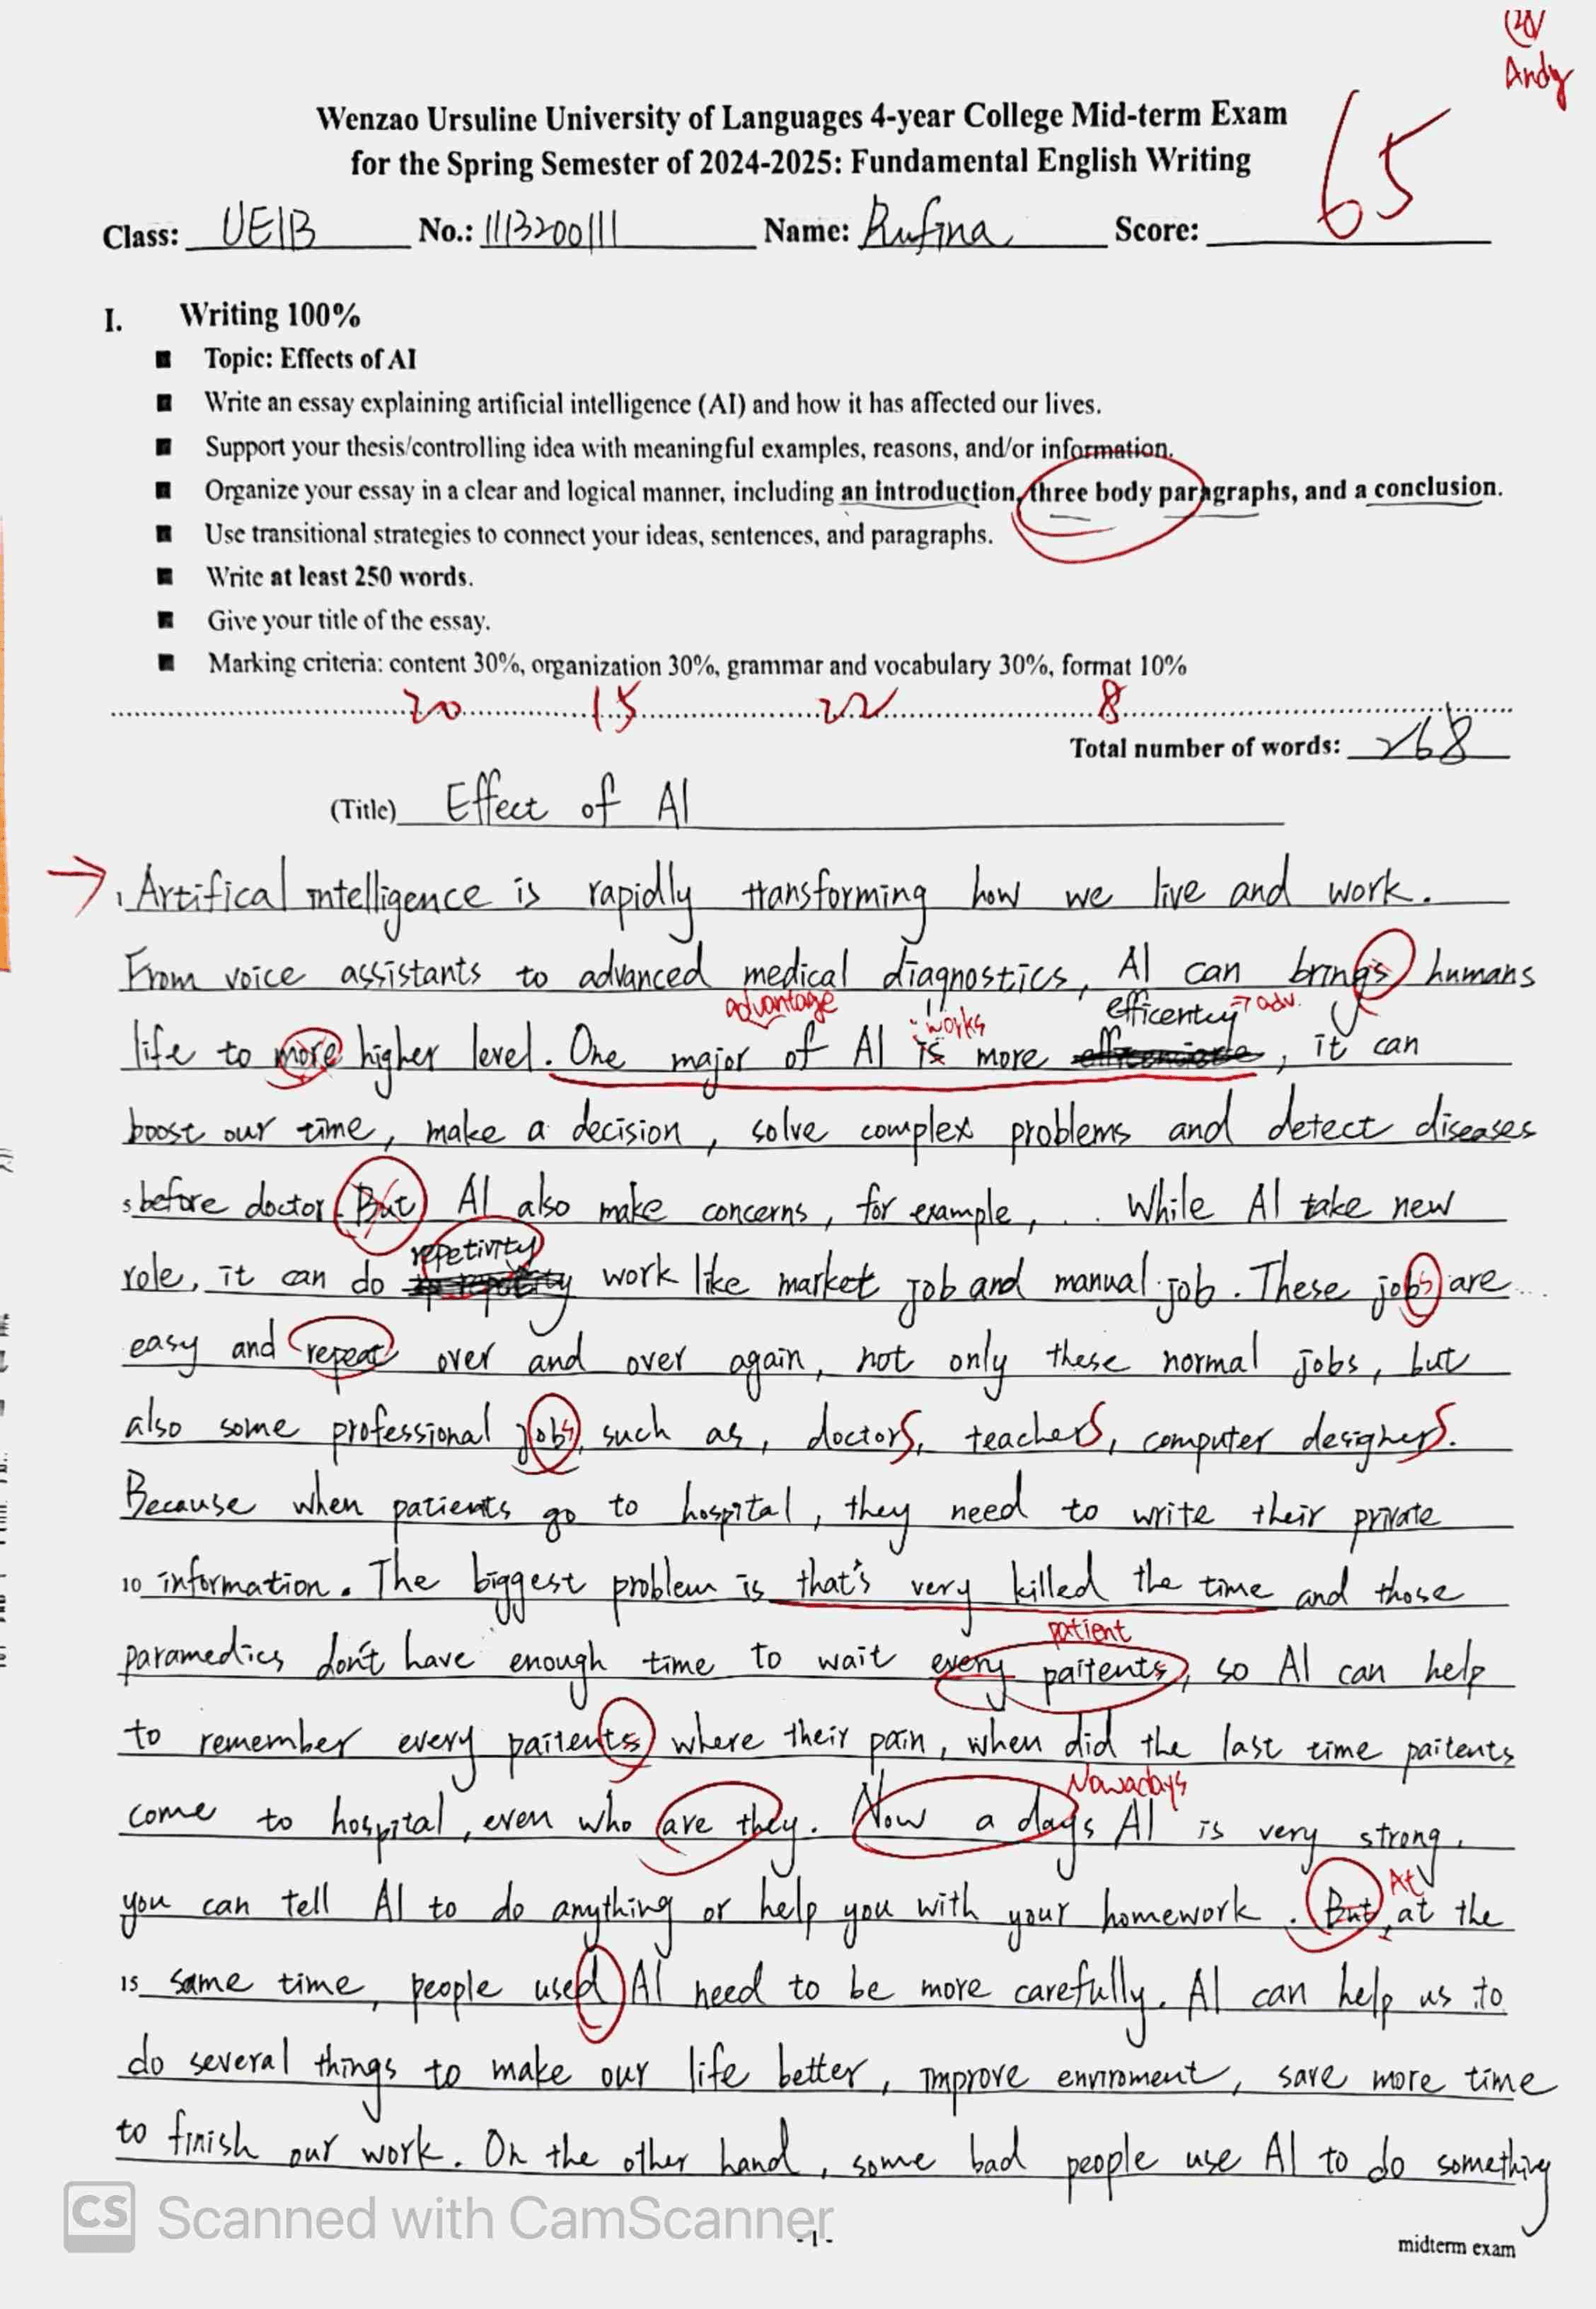 Andy
Wenzao Ursuline University of Languages 4-year College Mid-term Exam
for the Spring Semester of 2024-2025: Fundamental English Writing
65
Class: UE1B No.: 1113200111 Name: Rufina Score:
I. Writing 100%
■ Topic: Effects of AI
■ Write an essay explaining artificial intelligence (AI) and how it has affected our lives.
■ Support your thesis/controlling idea with meaningful examples, reasons, and/or information.
■ Organize your essay in a clear and logical manner, including an introduction, three body paragraphs, and a conclusion.
■ Use transitional strategies to connect your ideas, sentences, and paragraphs.
■ Write at least 250 words.
■ Give your title of the essay.
■ Marking criteria: content 30%, organization 30%, grammar and vocabulary 30%, format 10%
20 15 22 8
Total number of words: 268
(Title) Effect of AI
1 Artifical intelligence is rapidly transforming how we live and work.
From voice assistants to advanced medical diagnostics, AI can brings humans
advantage works efficentcy → adv.
life to more higher level. One major of AI is more , it can
boost our time, make a decision, solve complex problems and detect diseases
5 before doctor. But AI also make concerns, for example, . . While AI take new
repetivity
role, it can do work like market job and manual job. These jobs are
easy and repeat over and over again, not only these normal jobs, but
also some professional jobs, such as, doctors, teachers, computer designers.
Because when patients go to hospital, they need to write their private
10 information. The biggest problem is that's very killed the time and those
patient
paramedics don't have enough time to wait every paitents, so AI can help
to remember every paitents where their pain, when did the last time paitents
Nowadays
come to hospital, even who are they. Now a days AI is very strong,
At
you can tell AI to do anything or help you with your homework. But, at the
15 same time, people used AI need to be more carefully. AI can help us to
do several things to make our life better, improve enviroment, save more time
to finish our work. On the other hand, some bad people use AI to do something
CS Scanned with CamScanner
- 1 -
midterm exam